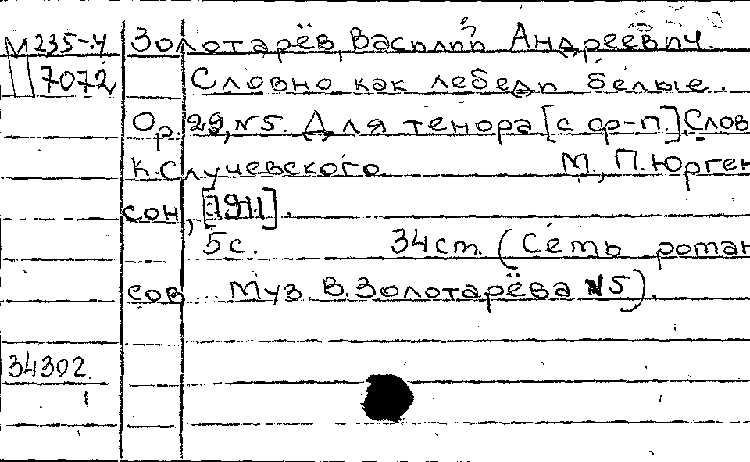 М 235-4 Золотарёв, Василий Андреевич.
7072 Словно как лебеди белые.
Ор. 29, №5. Для тенора [с ф-п.] Слов
К. Случевского М., П. Юрген
сон, [1911].
5 с. 34 cm. (Семь роман
сов. Муз. В. Золотарёва №5).
34302